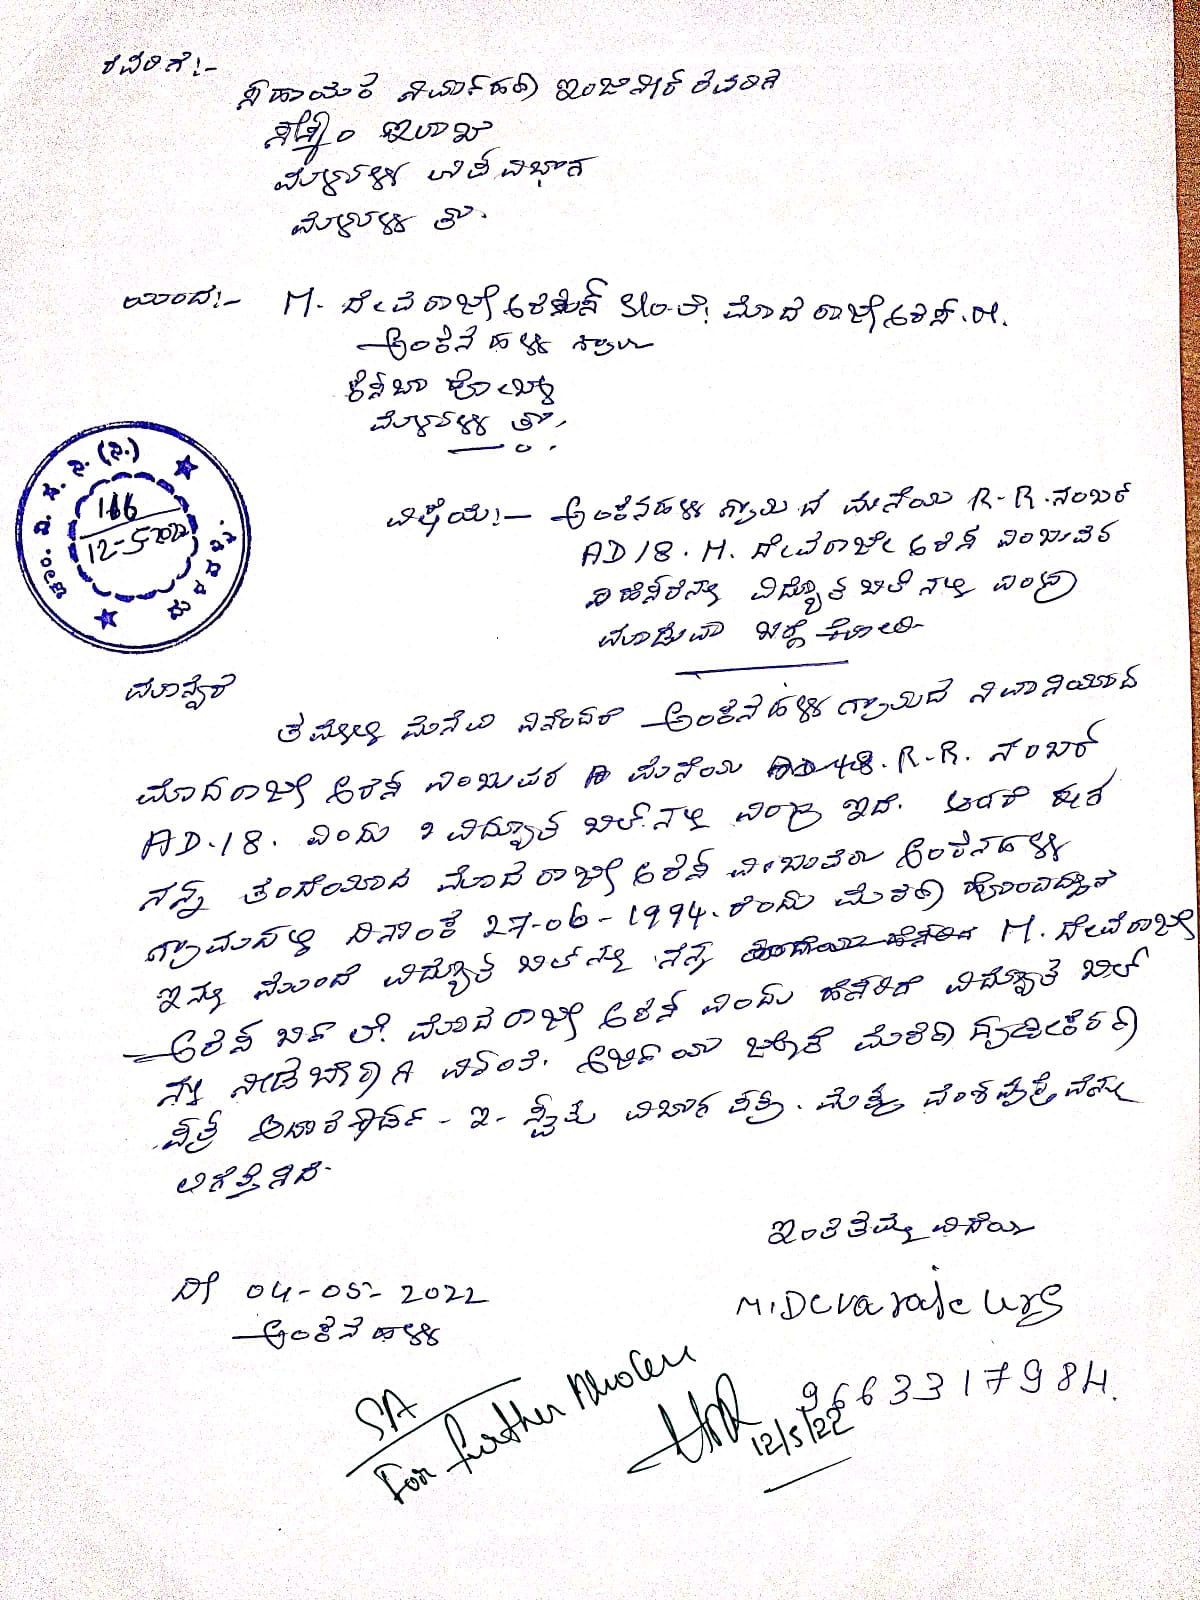 ರವರಿಗೆ:-
ಸಹಾಯಕ ನಿರ್ವಾಹಕ ಇಂಜಿನೀರ್ ರವರಿಗೆ
ಇಲಾಖೆ
ಉಪ ವಿಭಾಗ
ತಾ.
ಯಿಂದ:-  M. ದೇವರಾಜೇ ಅರಸ್ S/o ಲೇ: ಮೊದ ರಾಜೇ ಅರಸ್.
ಅಂಕನಹಳ್ಳಿ ಗ್ರಾಮ
ಕಸಬಾ ಹೋಬಳಿ
ತಾ.
ಮಂ. ವಿ. ಸ. ನಿ. (ನಿ.)
166
12-5-2022
ವಿಷಯ:- ಅಂಕನಹಳ್ಳಿ ಗ್ರಾಮದ ಮನೆಯ R-R. ನಂಬರ್
AD 18. M. ದೇವರಾಜೇ ಅರಸ್ ಎಂಬುವರ
ಹೆಸರನ್ನು ವಿದ್ಯುತ ಬಿಲ್ ನಲ್ಲಿ ಎಂದು
ಮಾಡುವ ಬಗ್ಗೆ ಕೋರಿ
ಮಾನ್ಯರೆ
ತಮ್ಮಲ್ಲಿ ಮನವಿ ಏನೆಂದರೆ ಅಂಕನಹಳ್ಳಿ ಗ್ರಾಮದ ನಿವಾಸಿಯಾದ
ಮೊದರಾಜೇ ಅರಸ್ ಎಂಬುವರ ಮನೆಯ R-R. ನಂಬರ್
AD.18. ಎಂದು ವಿದ್ಯುತ ಬಿಲ್ ನಲ್ಲಿ ಎಂದು ಇದೆ. ಆದರೆ ಈಗ
ನನ್ನ ತಂದೆಯಾದ ಮೊದರಾಜೇ ಅರಸ್ ಎಂಬುವರು ಅಂಕನಹಳ್ಳಿ
ಗ್ರಾಮದಲ್ಲಿ ದಿನಾಂಕ 27-06-1994. ರಂದು ಮರಣ ಹೊಂದಿದ್ದಾರೆ
ಇನ್ನು ಮುಂದೆ ವಿದ್ಯುತ ಬಿಲ್ ನ್ನು ನನ್ನ M. ದೇವರಾಜೇ
ಅರಸ್ ಬಿನ್ ಲೇ. ಮೊದರಾಜೇ ಅರಸ್ ಎಂದು ಹೆಸರಿಗೆ ವಿದ್ಯುತ ಬಿಲ್
ನ್ನು ನೀಡಬೇಕಾಗಿ ವಿನಂತಿ. ಅರ್ಜಿಯ ಜ್ಯೊತೆ ಮರಣ ದೃಢೀಕರಣ
ಪತ್ರ ಆಧಾರಕಾರ್ಡ್ - ಇ - ಸ್ವತ್ತು ವಿಭಾಗ ಪತ್ರ. ಮತ್ತು ವಂಶವೃಕ್ಷವನ್ನು
ಲಗತ್ತಿಸಿದೆ.
ಇಂತಿ ತಮ್ಮ ವಿಧೇಯ
ದಿ 04-05-2022
M. Devaraje Urs
ಅಂಕನಹಳ್ಳಿ
9663317984.
SA
For further
12/5/22